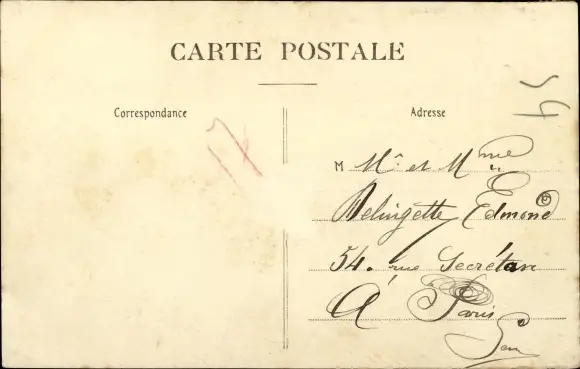 CARTE POSTALE
Correspondance
Adresse
M Mr et Mme
Delingette Edmond
54. rue Secrétan
À Paris